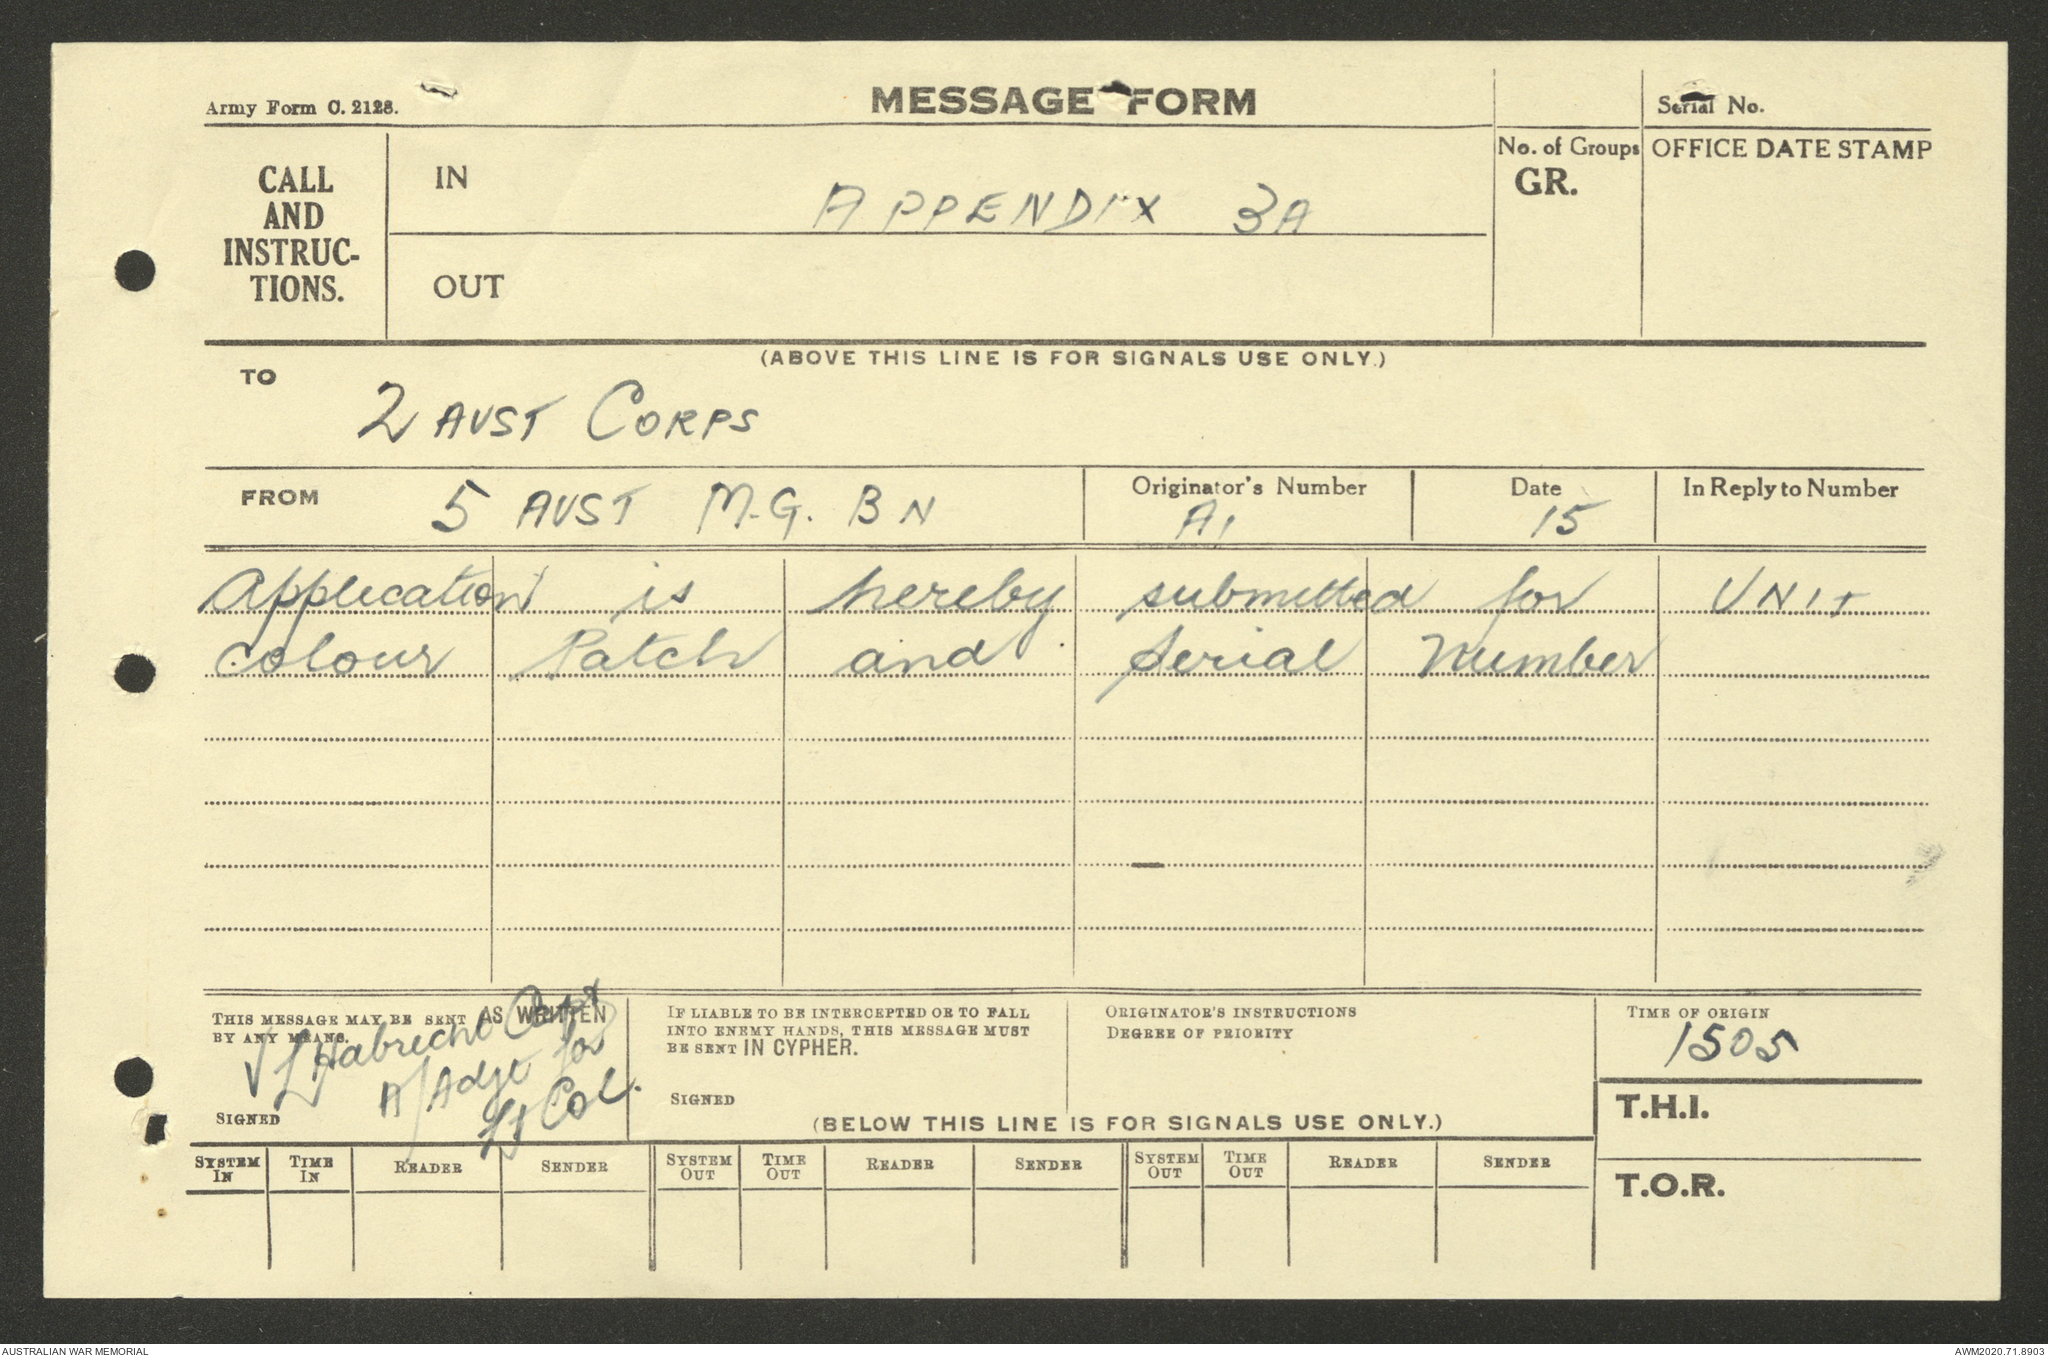 Army Form C. 2128.
MESSAGE FORM
Serial No.
CALL
AND
INSTRUC-
TIONS.
IN
APPENDIX 3A
OUT
No. of Groups
GR.
OFFICE DATE STAMP
(ABOVE THIS LINE IS FOR SIGNALS USE ONLY.)
TO
2 AUST CORPS
FROM
5 AUST M.G. BN
Originator's Number
A1
Date
15
In Reply to Number
Application is hereby submitted for UNIT
colour Patch and Serial Number
THIS MESSAGE MAY BE SENT AS WRITTEN
BY ANY MEANS.
Habrecht Capt
A/Adjt for
Lt Col.
SIGNED
IF LIABLE TO BE INTERCEPTED OR TO FALL
INTO ENEMY HANDS, THIS MESSAGE MUST
BE SENT IN CYPHER.
SIGNED
ORIGINATOR'S INSTRUCTIONS
DEGREE OF PRIORITY
TIME OF ORIGIN
1505
T.H.I.
T.O.R.
(BELOW THIS LINE IS FOR SIGNALS USE ONLY.)
SYSTEM IN
TIME IN
READER
SENDER
SYSTEM OUT
TIME OUT
READER
SENDER
SYSTEM OUT
TIME OUT
READER
SENDER
AUSTRALIAN WAR MEMORIAL
AWM2020.71.8903